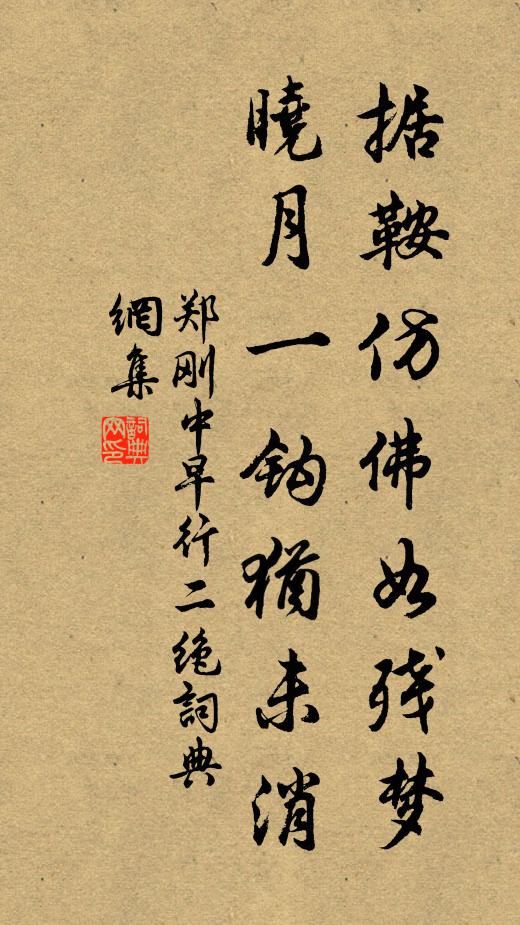 据鞍仿佛如残梦
曉月一鈎猶未消
郑刚中早行二绝詞典
網集
詞典
网印